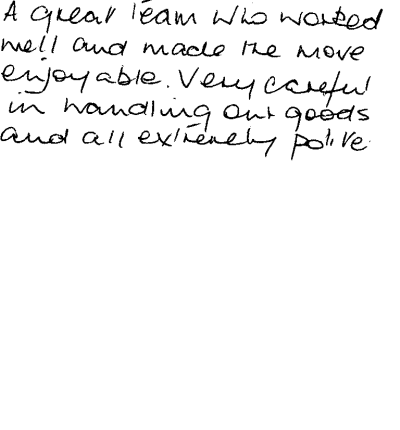 A great team who worked
well and made the move
enjoyable. Very careful
in handling our goods
and all extremely polite.